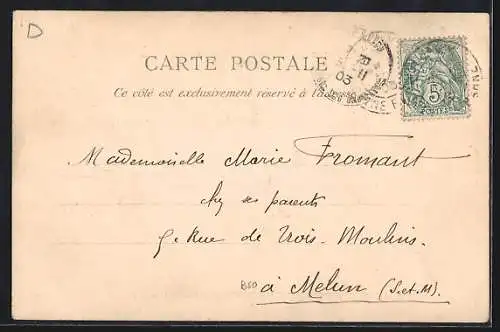 D
CARTE POSTALE
Ce côté est exclusivement réservé à l'a
5
POSTES
03
Mademoiselle Marie Fromant
chez ses parents
5. Rue de Trois-Moulins.
à Melun (S.et.M.)